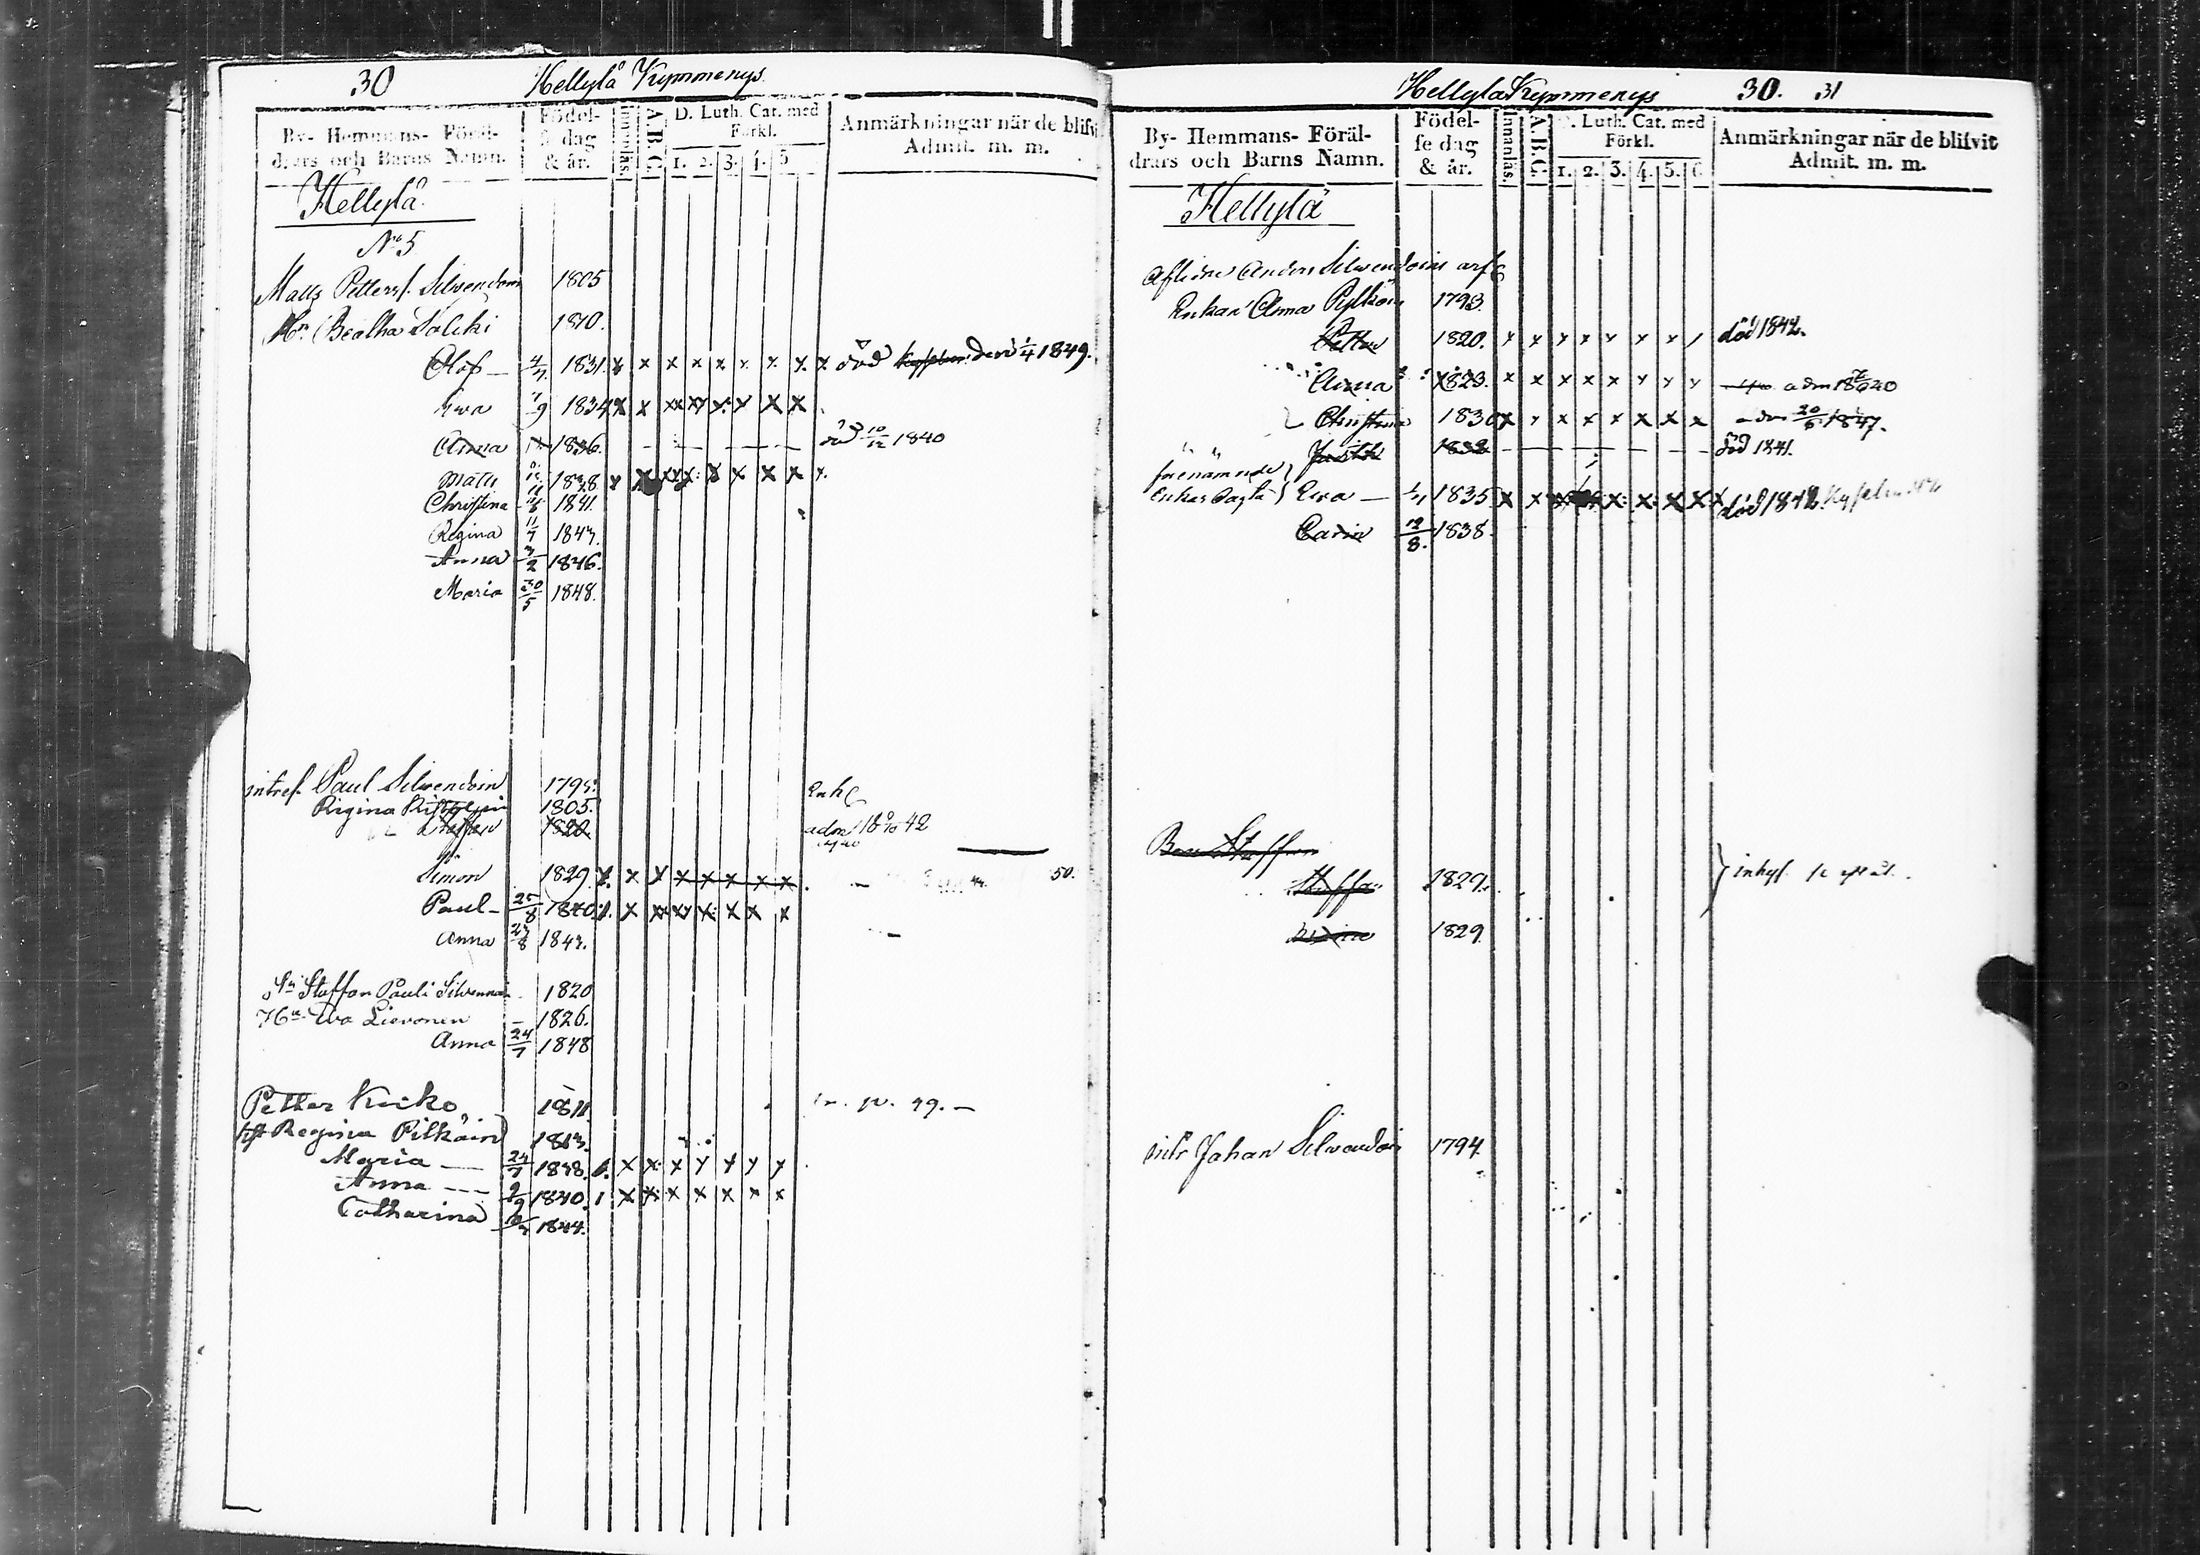 30 Hellylä Kymmenys.
By- Hemmans- Föräl-
drars och Barns Namn.
Födel-
se dag
& år.
Innanläs.
A.B.C.
D. Luth. Cat. med
Förkl.
1. 2. 3. 4. 5
Anmärkningar när de blifvit
Admit. m. m.
Hellylä
No 5
Matts Petterss. Silvendoin 1805
Hu Beatha Solcki 1810.
Olof 4/7 1831. x x x x x x x x x död den 1/4 1849.
Ewa 1/9 1834 x x xx xx x x x x
Anna 1836. död 10/12 1840
Matts 1838 x x xx x x x x x
Christina 1841.
Regina 11/7 1843.
Anna 3/2 1846.
Maria 30/5 1848.
Paul Silvendoin 1795. Enkl
Regina 1805.
Staffan 1820. adm 18 42
Simon 1829. x x x x x x x x 50.
Paul 25/8 1840. x xx xx x x x x
Anna 23/8 1843.
Sn Staffan Pauli Silvennoin 1820
Hu Eva Lievonen 1826.
Anna 24/7 1848
Petter Kucko 1811 49.
Regina Pilkäin 1813.
Maria 24/7 1838. x x x x x x x
Anna 9/9 1840. 1 x x x x x x x
Catharina 1844.
Hellylä Kymmenys 30. 31
By- Hemmans- Föräl-
drars och Barns Namn.
Födel-
se dag
& år.
Innanläs.
A.B.C.
D. Luth. Cat. med
Förkl.
1. 2. 3. 4. 5. 6
Anmärkningar när de blifvit
Admit. m. m.
Hellylä
Aflidne Anders Silvendoins arf
Enkan Anna Pylköin 1793.
Petter 1820. x x x x x x x / död 1842.
Anna 1823. x x x x x x x x adm 18 40
Christina 1830 x x x x x x x x adm 20/6 1847.
1832 död 1841.
förenämnde
Enkas Ewa 1/11 1835. x x x x x x död 1842.
Carin 12/8. 1838.
Staffan
Staffan 1829. inhys.
1829.
Johan Silvendoin 1794.